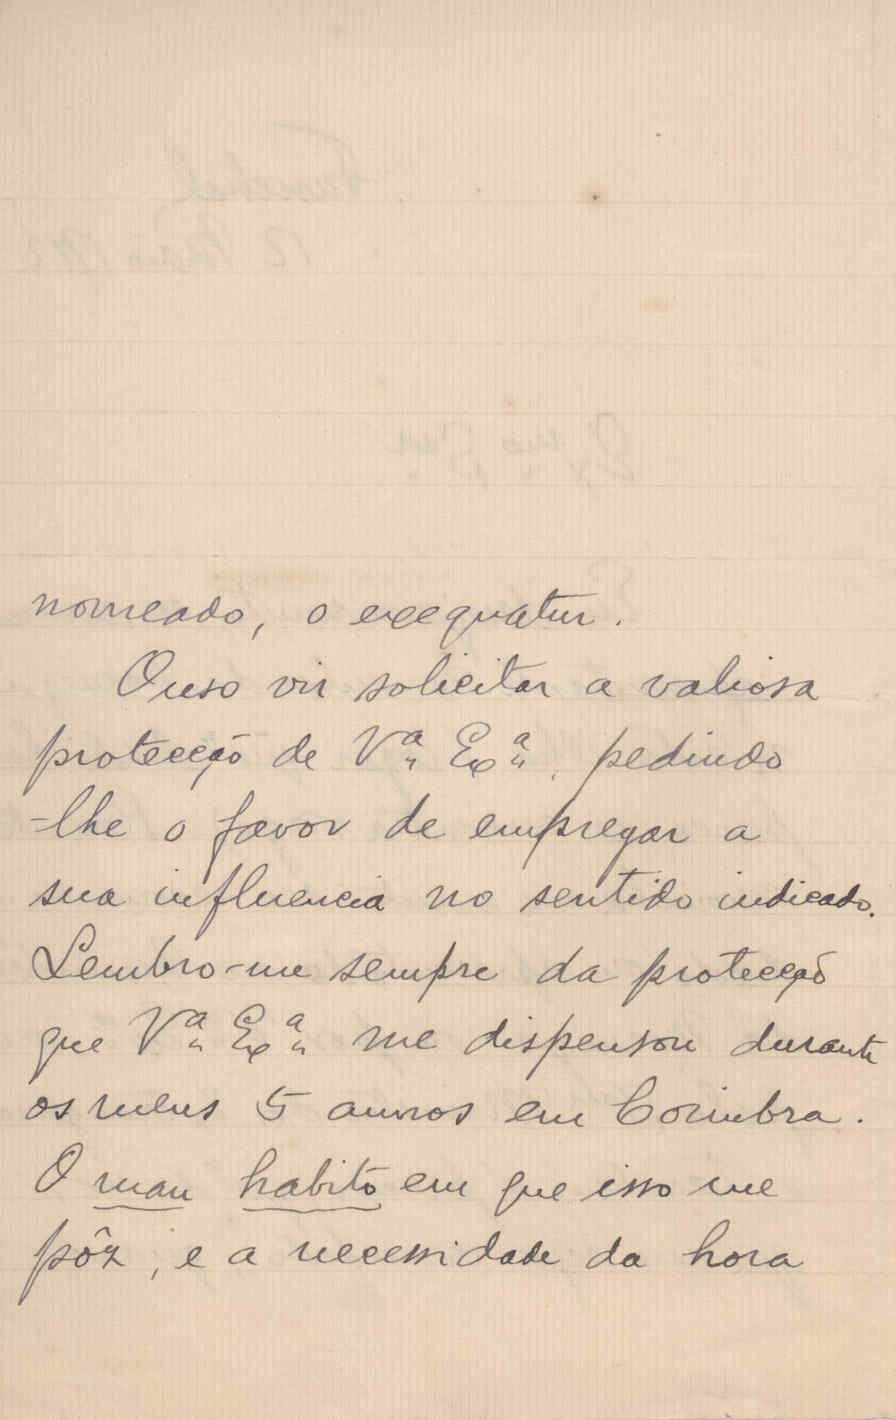 nomeado, o exequatur.
Ouso vir solicitar a valiosa
protecção de Vª Exª, pedindo
-lhe o favor de empregar a
sua influencia no sentido indicado.
Lembro-me sempre da protecção
que Vª Exª me dispensou durante
os meus 5 annos em Coimbra.
O mau habito em que isso me
pôz, e a necessidade da hora